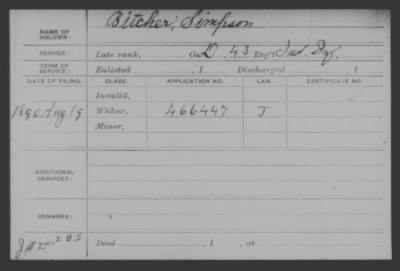 NAME OF SOLDIER: Bitcher, Simpson
SERVICE: Late rank, Co. D, 43 Reg't Ind. Inf.
TERM OF SERVICE: Enlisted , 1 Discharged , 1
DATE OF FILING. CLASS. APPLICATION NO. LAW. CERTIFICATE NO.
Invalid,
1890 Aug 19 Widow, 466447 J
Minor,
ADDITIONAL SERVICES:
REMARKS:
Died , 1 , at